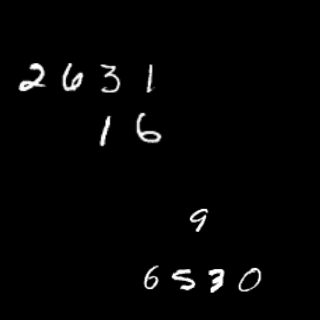 2631
16
9
6530